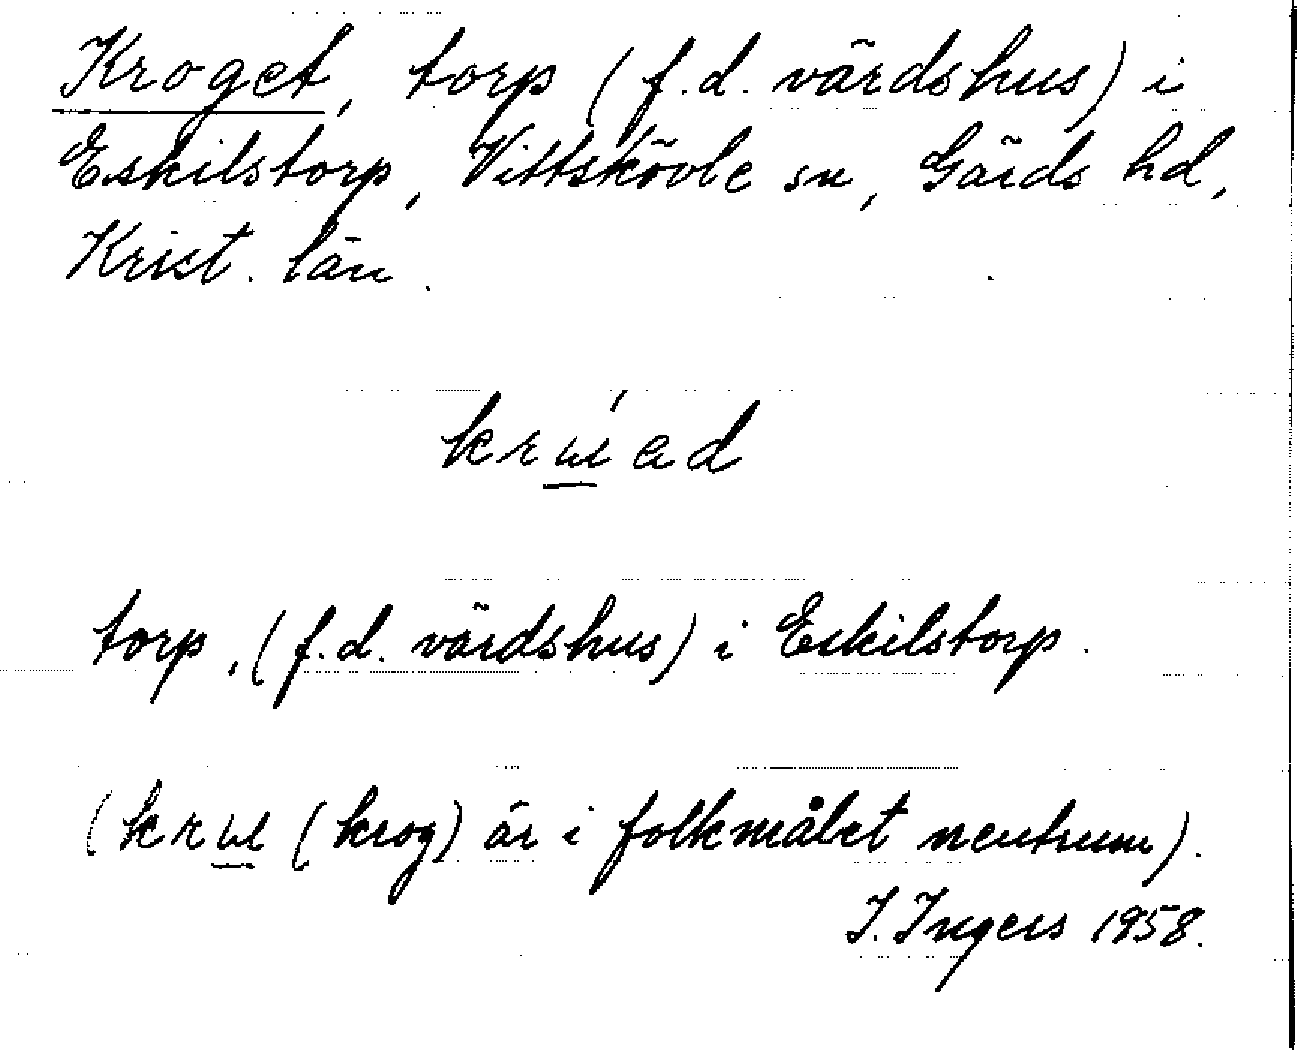 Kroget, torp (f.d. värdshus) i
Eskilstorp, Vittskövle sn, Gärds hd,
Krist. län.
krɯ́ad
torp, (f.d. värdshus) i Eskilstorp.
(krɯ (krog) är i folkmålet neutrum).
I. Ingers 1958.